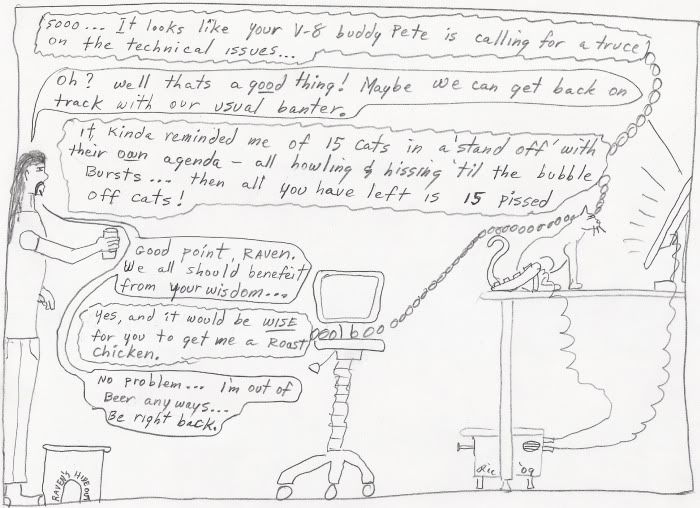 sooo... It looks like your V-8 buddy Pete is calling for a truce
on the technical issues...
Oh? well thats a good thing! Maybe we can get back on
track with our usual banter.
it kinda reminded me of 15 cats in a 'stand off' with
their own agenda – all howling & hissing 'til the bubble
Bursts... then all you have left is 15 pissed
off cats!
Good point, Raven.
We all should benefeit
from your wisdom...
Yes, and it would be WISE
for you to get me a Roast
Chicken.
No problem... I'm out of
Beer anyways...
Be right back.
RAVEN'S HIDE OUT
Ric '09